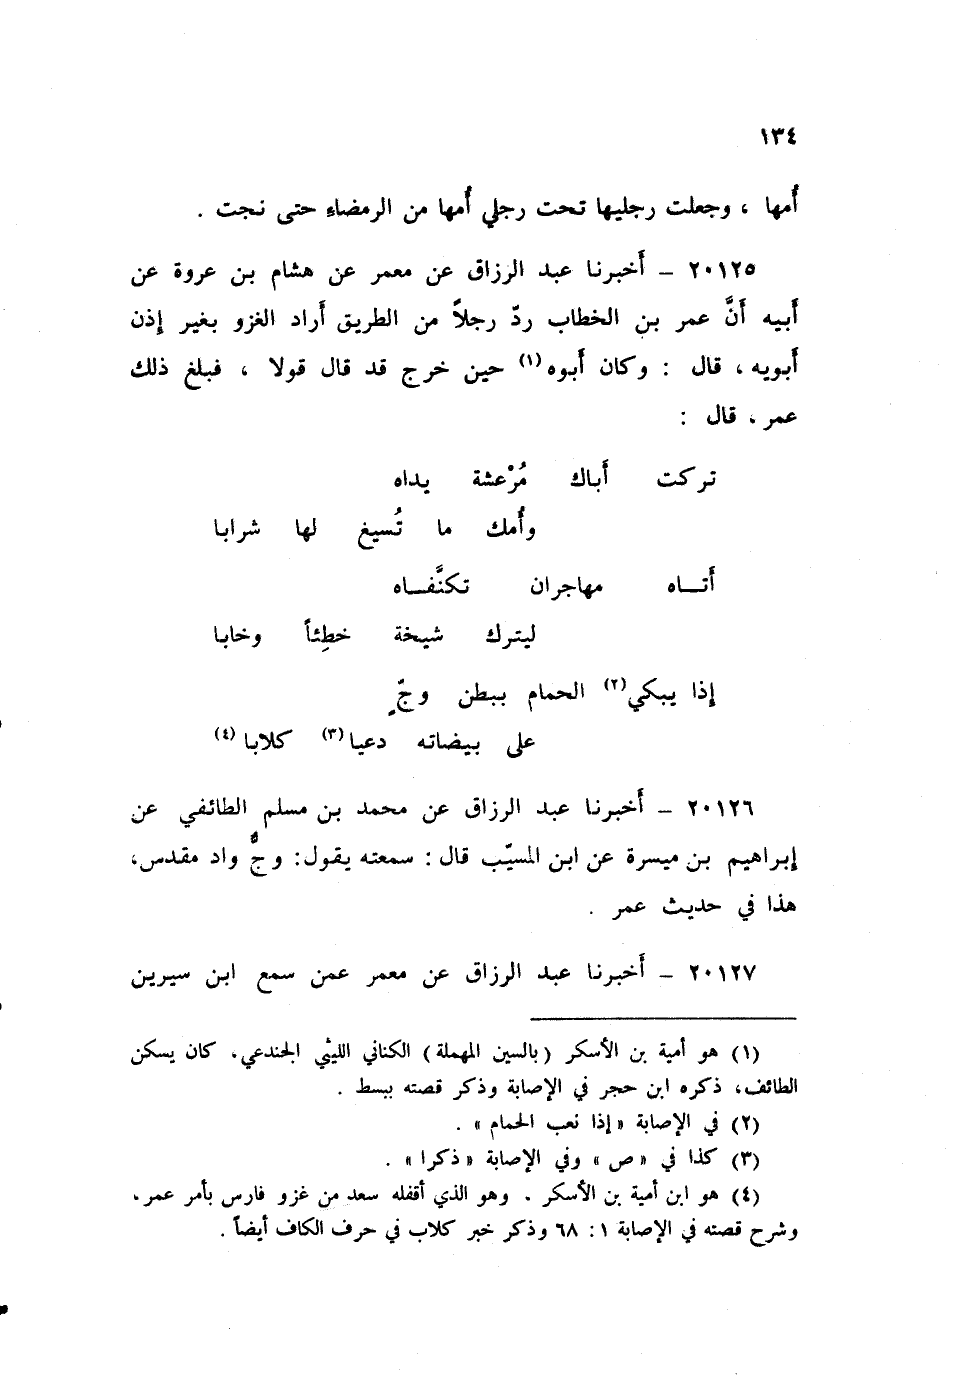 ١٣٤
أُمها ، وجعلت رجليها تحت رجلي أُمها من الرمضاءِ حتى نجت .
٢٠١٢٥ – أَخبرنا عبد الرزاق عن معمر عن هشام بن عروة عن
أَبيه أَنَّ عمر بن الخطاب ردّ رجلاً من الطريق أَراد الغزو بغير إذن
أَبويه ، قال : وكان أَبوه (١) حين خرج قد قال قولا ، فبلغ ذلك
عمر ، قال :
تركت أَباك مُرْعشة يداه
وأُمك ما تُسيغ لها شرابا
أَتــاه مهاجران تكنَّفــاه
ليترك شيخة خطِئاً وخابا
إذا يبكي (٢) الحمام ببطن وجٍّ
على بيضاته دعيا (٣) كلابا (٤)
٢٠١٢٦ – أَخبرنا عبد الرزاق عن محمد بن مسلم الطائفي عن
إبراهيم بن ميسرة عن ابن المسيّب قال : سمعته يقول : وجٌّ واد مقدس،
هذا في حديث عمر .
٢٠١٢٧ – أَخبرنا عبد الرزاق عن معمر عمن سمع ابن سيرين
(١) هو أمية بن الأسكر (بالسين المهملة) الكناني الليثي الجندعي، كان يسكن
الطائف، ذكره ابن حجر في الإصابة وذكر قصته ببسط .
(٢) في الإصابة «إذا نعب الحمام» .
(٣) كذا في «ص» وفي الإصابة «ذكرا» .
(٤) هو ابن أمية بن الأسكر . وهو الذي أقفله سعد من غزو فارس بأمر عمر،
وشرح قصته في الإصابة ١ : ٦٨ وذكر خبر كلاب في حرف الكاف أيضاً .